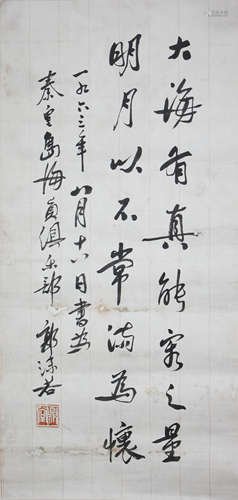 大海有真能容之量
明月以不常满為懷
一九六三年八月十六日書為
秦皇島海員俱乐部 郭沫若